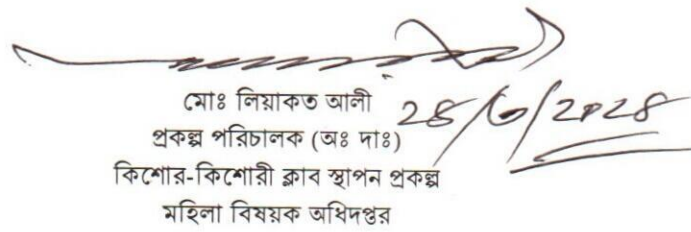 মোঃ লিয়াকত আলী
প্রকল্প পরিচালক (অঃ দাঃ)
কিশোর-কিশোরী ক্লাব স্থাপন প্রকল্প
মহিলা বিষয়ক অধিদপ্তর